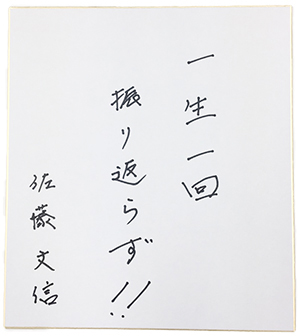 一生一回
振り返らず!!
佐藤文信